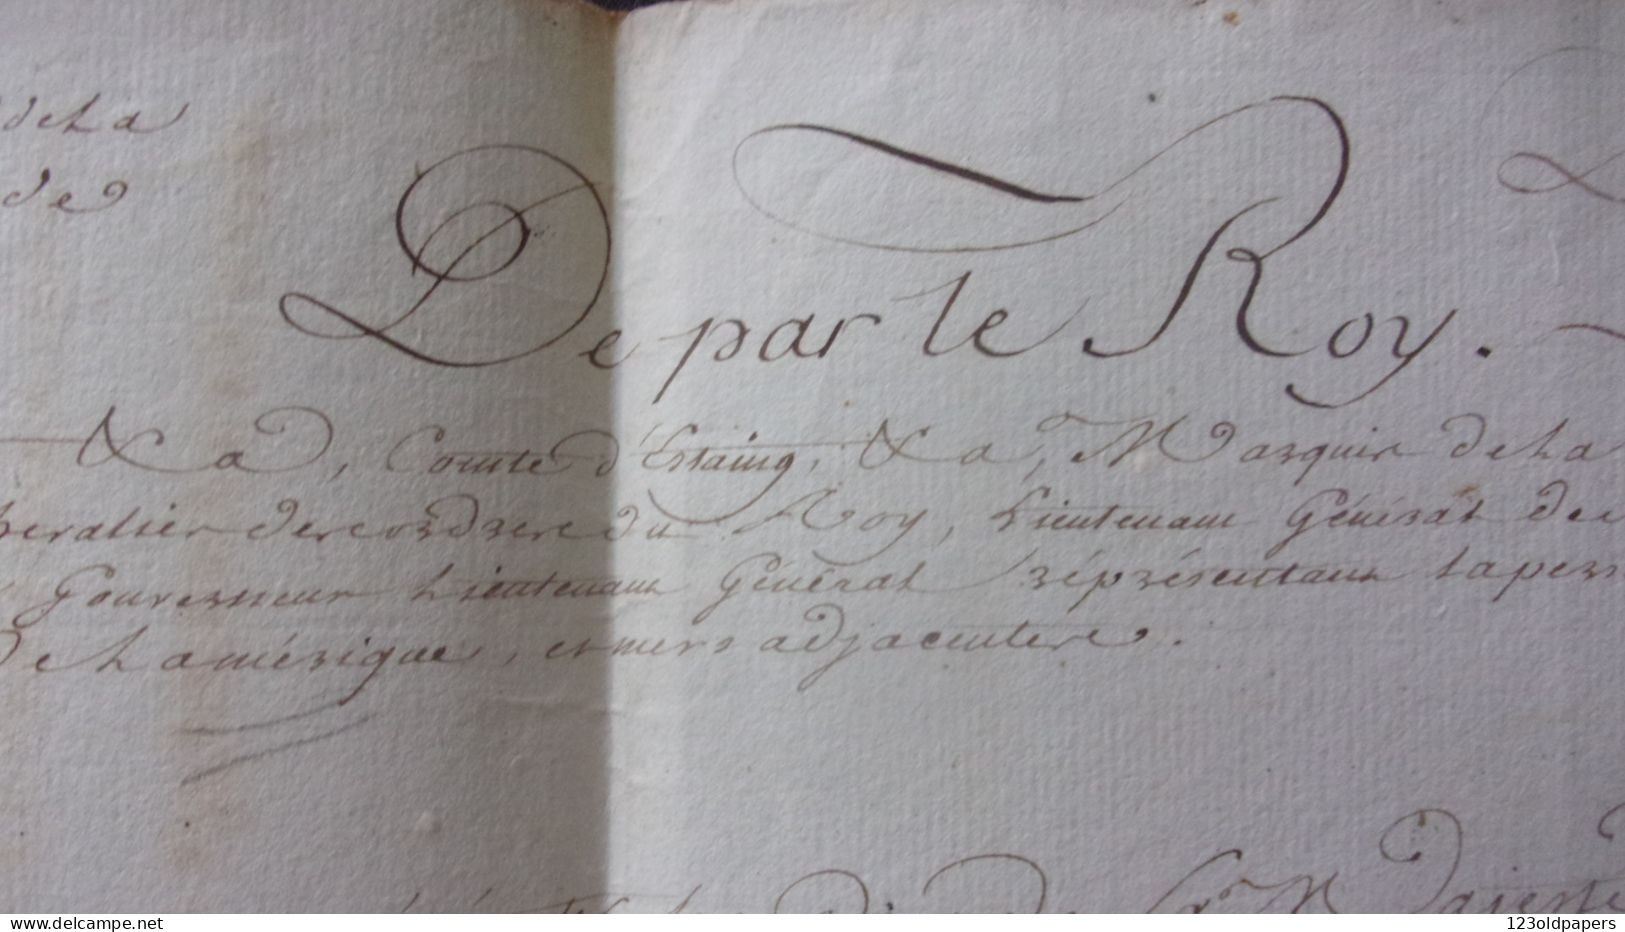 de La
de
De par le Roy.
&a, Comte d'Estaing, &a, Marquis de La
hevalier de ses ordres du Roy, Lieutenant Général des
Gouverneur Lieutenant Général réprésentant la pers
de L'amérique, et mers adjacentes.
Majesté
www.delcampe.net
123oldpapers